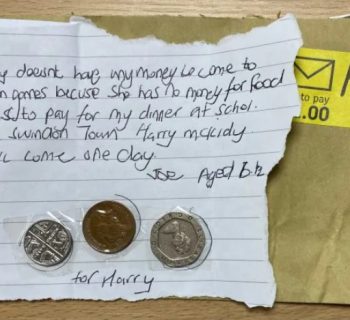 doesnt have any money to come to
games becuse she has no money for food
to pay for my dinner at schol.
Swindon Town Harry
come one day.
Joe Aged 6½
to pay
.00
for Harry